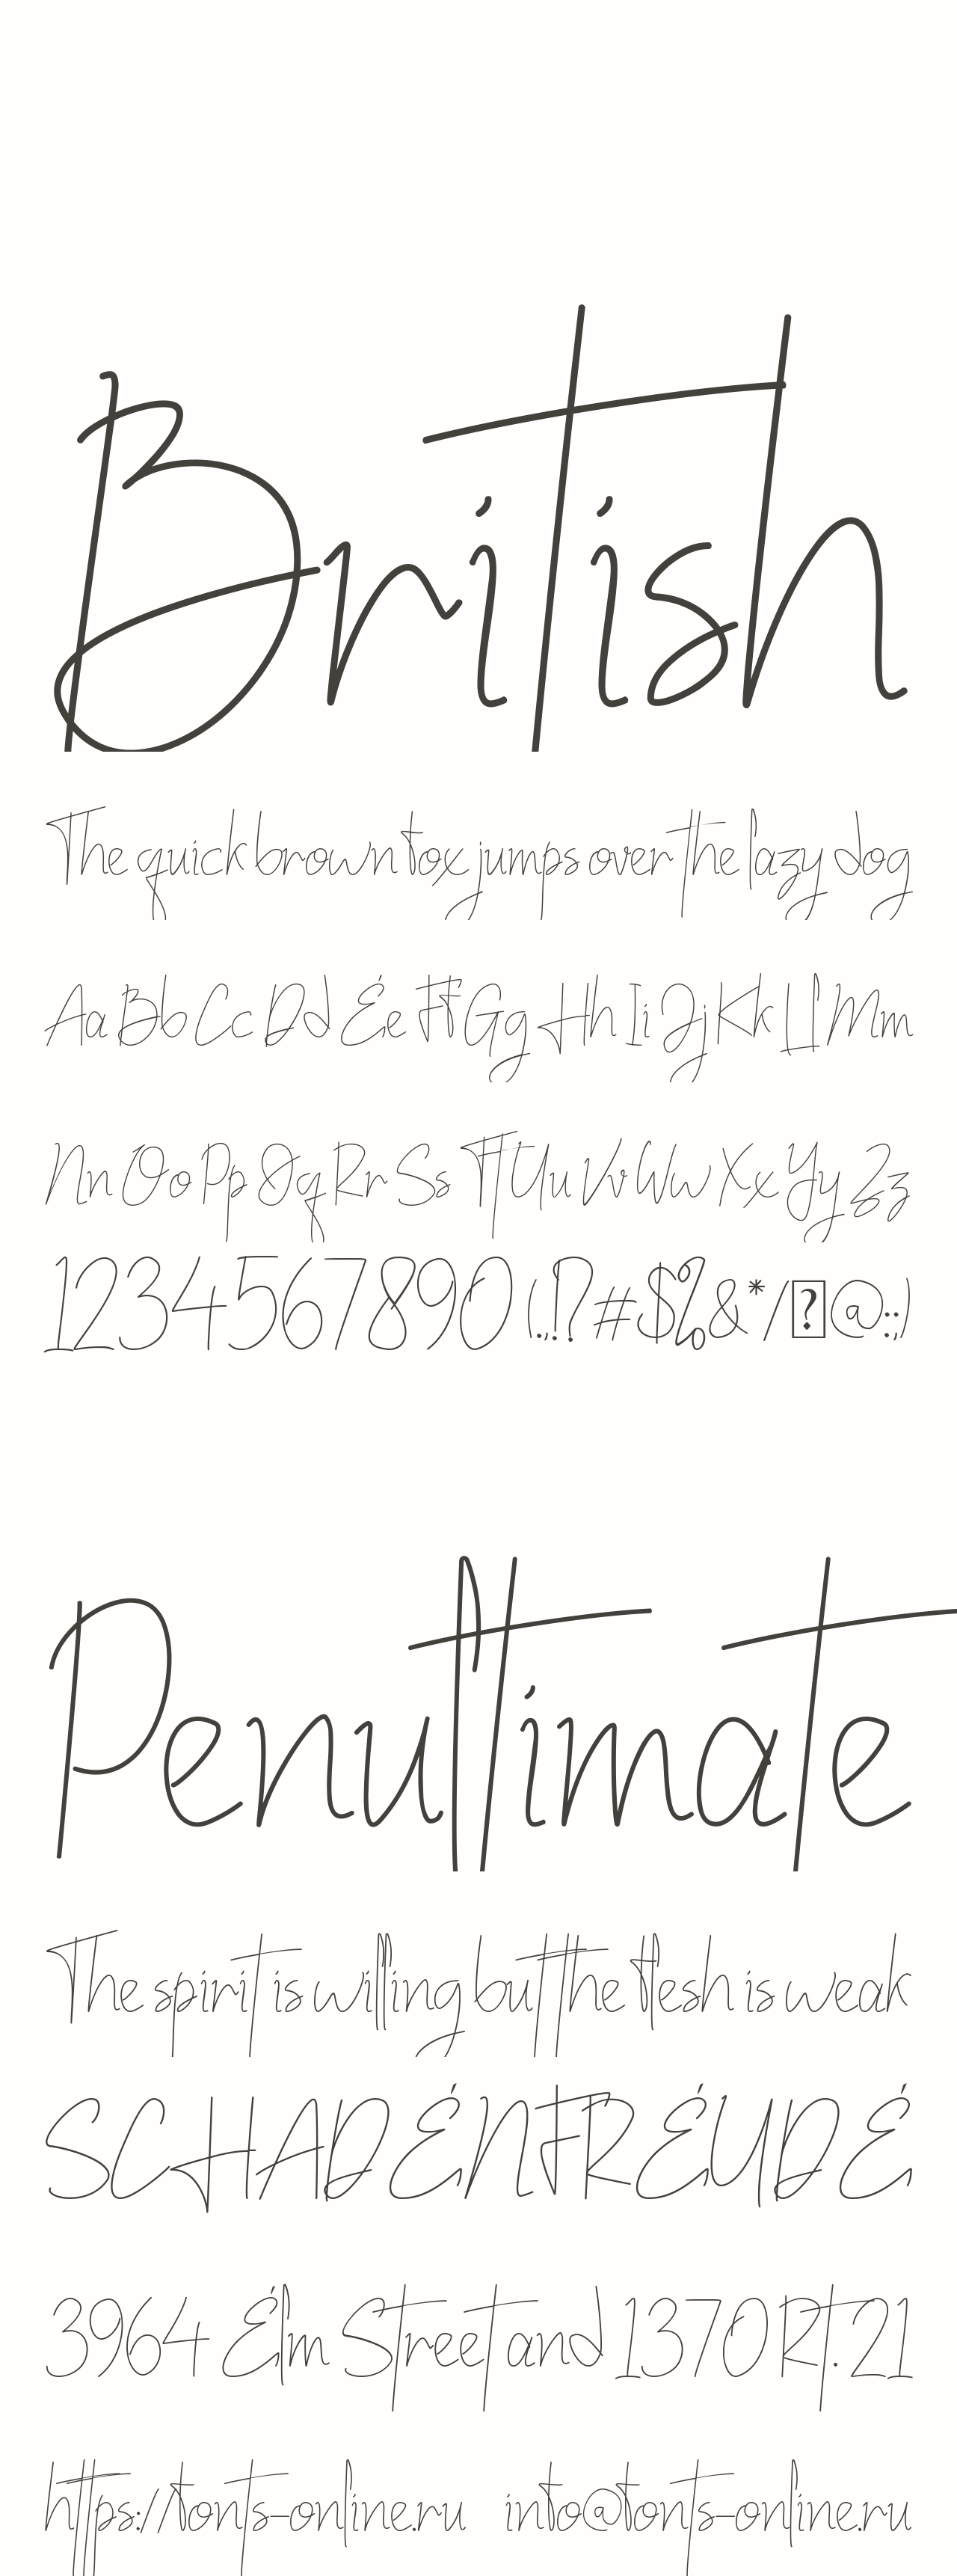 British
The quick brown fox jumps over the lazy dog
Aa Bb Cc Dd Ee Ff Gg Hh Ii Jj Kk Ll Mm
Nn Oo Pp Qq Rr Ss Tt Uu Vv Ww Xx Yy Zz
1234567890 (.,!?#$%&*/?@:;)
Penultimate
The spirit is willing but the flesh is weak
SCHADENFREUDE
3964 Elm Street and 1370 Rt. 21
https://fonts-online.ru info@fonts-online.ru